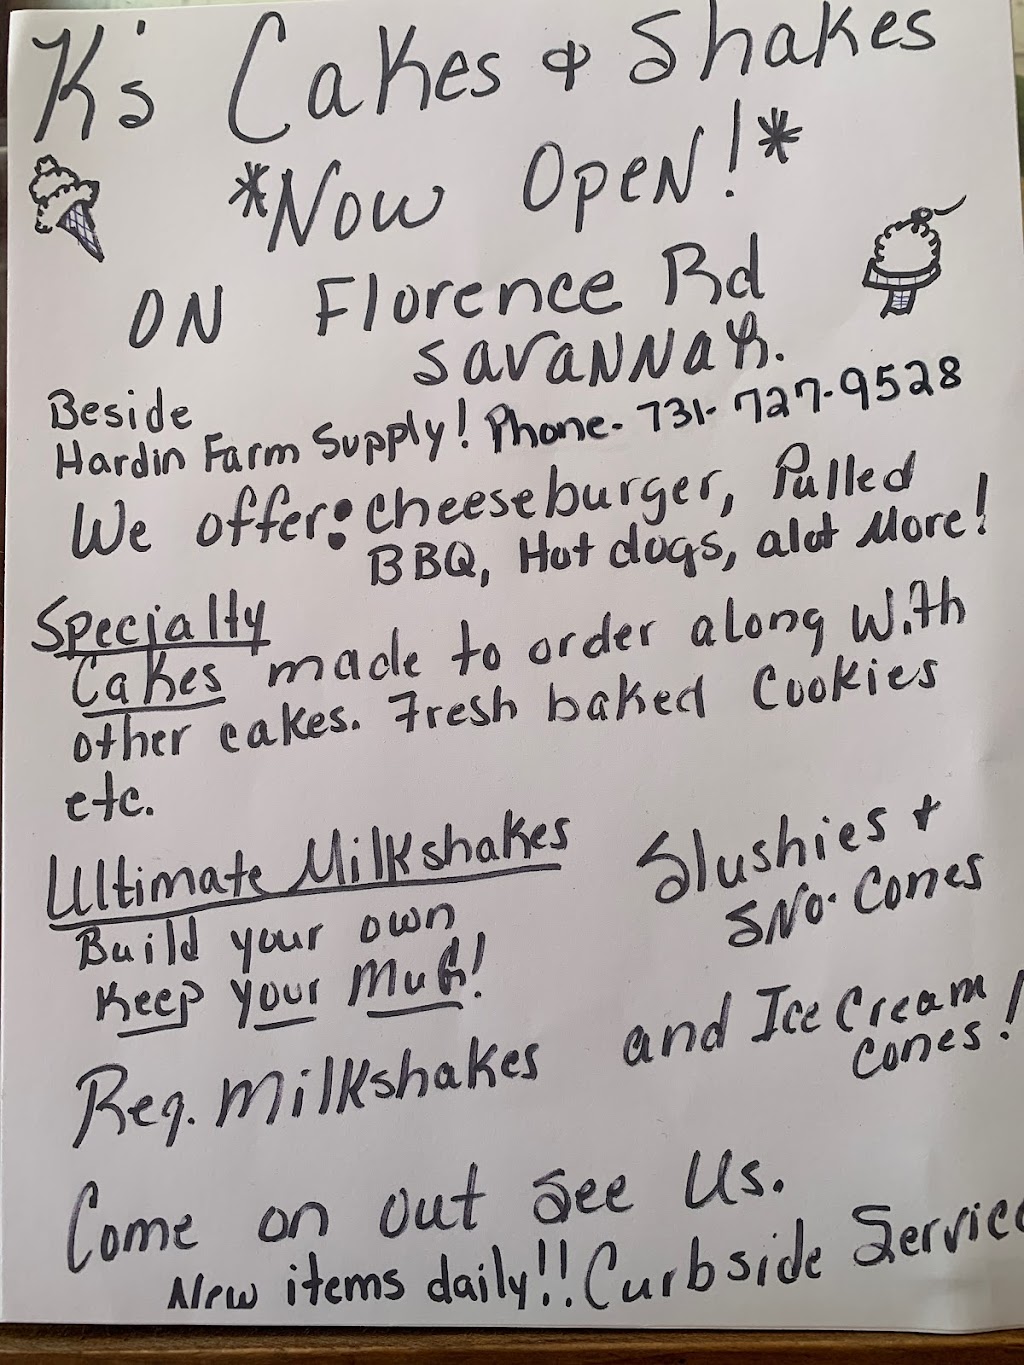 K's Cakes & Shakes
*Now Open!*
ON Florence Rd
Savannah.
Beside
Hardin Farm Supply! Phone- 731-727-9528
We offer: Cheeseburger, Pulled
BBQ, Hot dogs, alot More!
Specialty
Cakes made to order along With
other cakes. Fresh baked Cookies
etc.
Ultimate Milkshakes
Build your own
Keep your Mug!
Slushies +
SNO-Cones
Reg. Milkshakes
and Ice Cream
Cones!
Come on out See Us.
New items daily!! Curbside Service